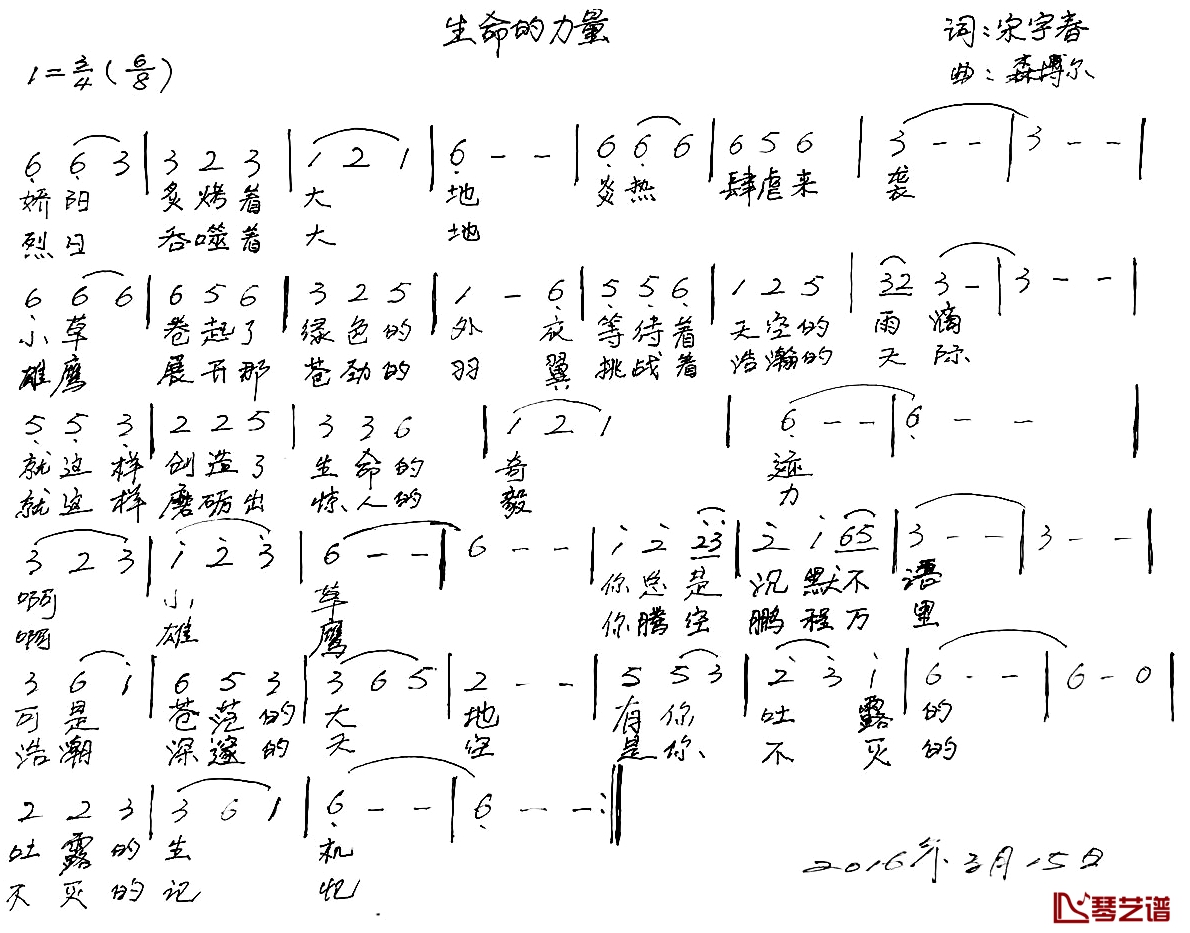 生命的力量
词:宋宇春
1=3/4(6/8)
曲:森博尔
6 6 3 | 3 2 3 | 1 2 1 | 6 - - | 6 6 6 | 6 5 6 | 3 - - | 3 - - |
娇阳 炙烤着 大 地 炎热 肆虐来 袭
烈日 吞噬着 大 地
6 6 6 | 6 5 6 | 3 2 5 | 1 - 6 | 5 5 6 | 1 2 5 | 32 3 - | 3 - - |
小草 卷起了 绿色的 外 衣 等待着 天空的 雨 滴
雄鹰 展开那 苍劲的 羽 翼 挑战着 浩瀚的 天 际
5 5 3 | 2 2 5 | 3 3 6 | 1 2 1 | 6 - - | 6 - - |
就这样 创造了 生命的 奇 迹
就这样 磨砺出 惊人的 毅 力
3 2 3 | 1 2 3 | 6 - - | 6 - - | 1 2 23 | 2 1 65 | 3 - - | 3 - - |
啊 小 草 你总是 沉默不 语
啊 雄 鹰 你腾空 鹏程万 里
3 6 1 | 6 5 3 | 3 6 5 | 2 - - | 5 5 3 | 2 3 1 | 6 - - | 6 - 0 |
可是 苍茫的 大 地 有你 吐 露 的
浩潮 深邃的 天 空 是你 不 灭 的
2 2 3 | 3 6 1 | 6 - - | 6 - - :||
吐露的 生 机
不灭的 记 忆
2016年3月15日
琴艺谱